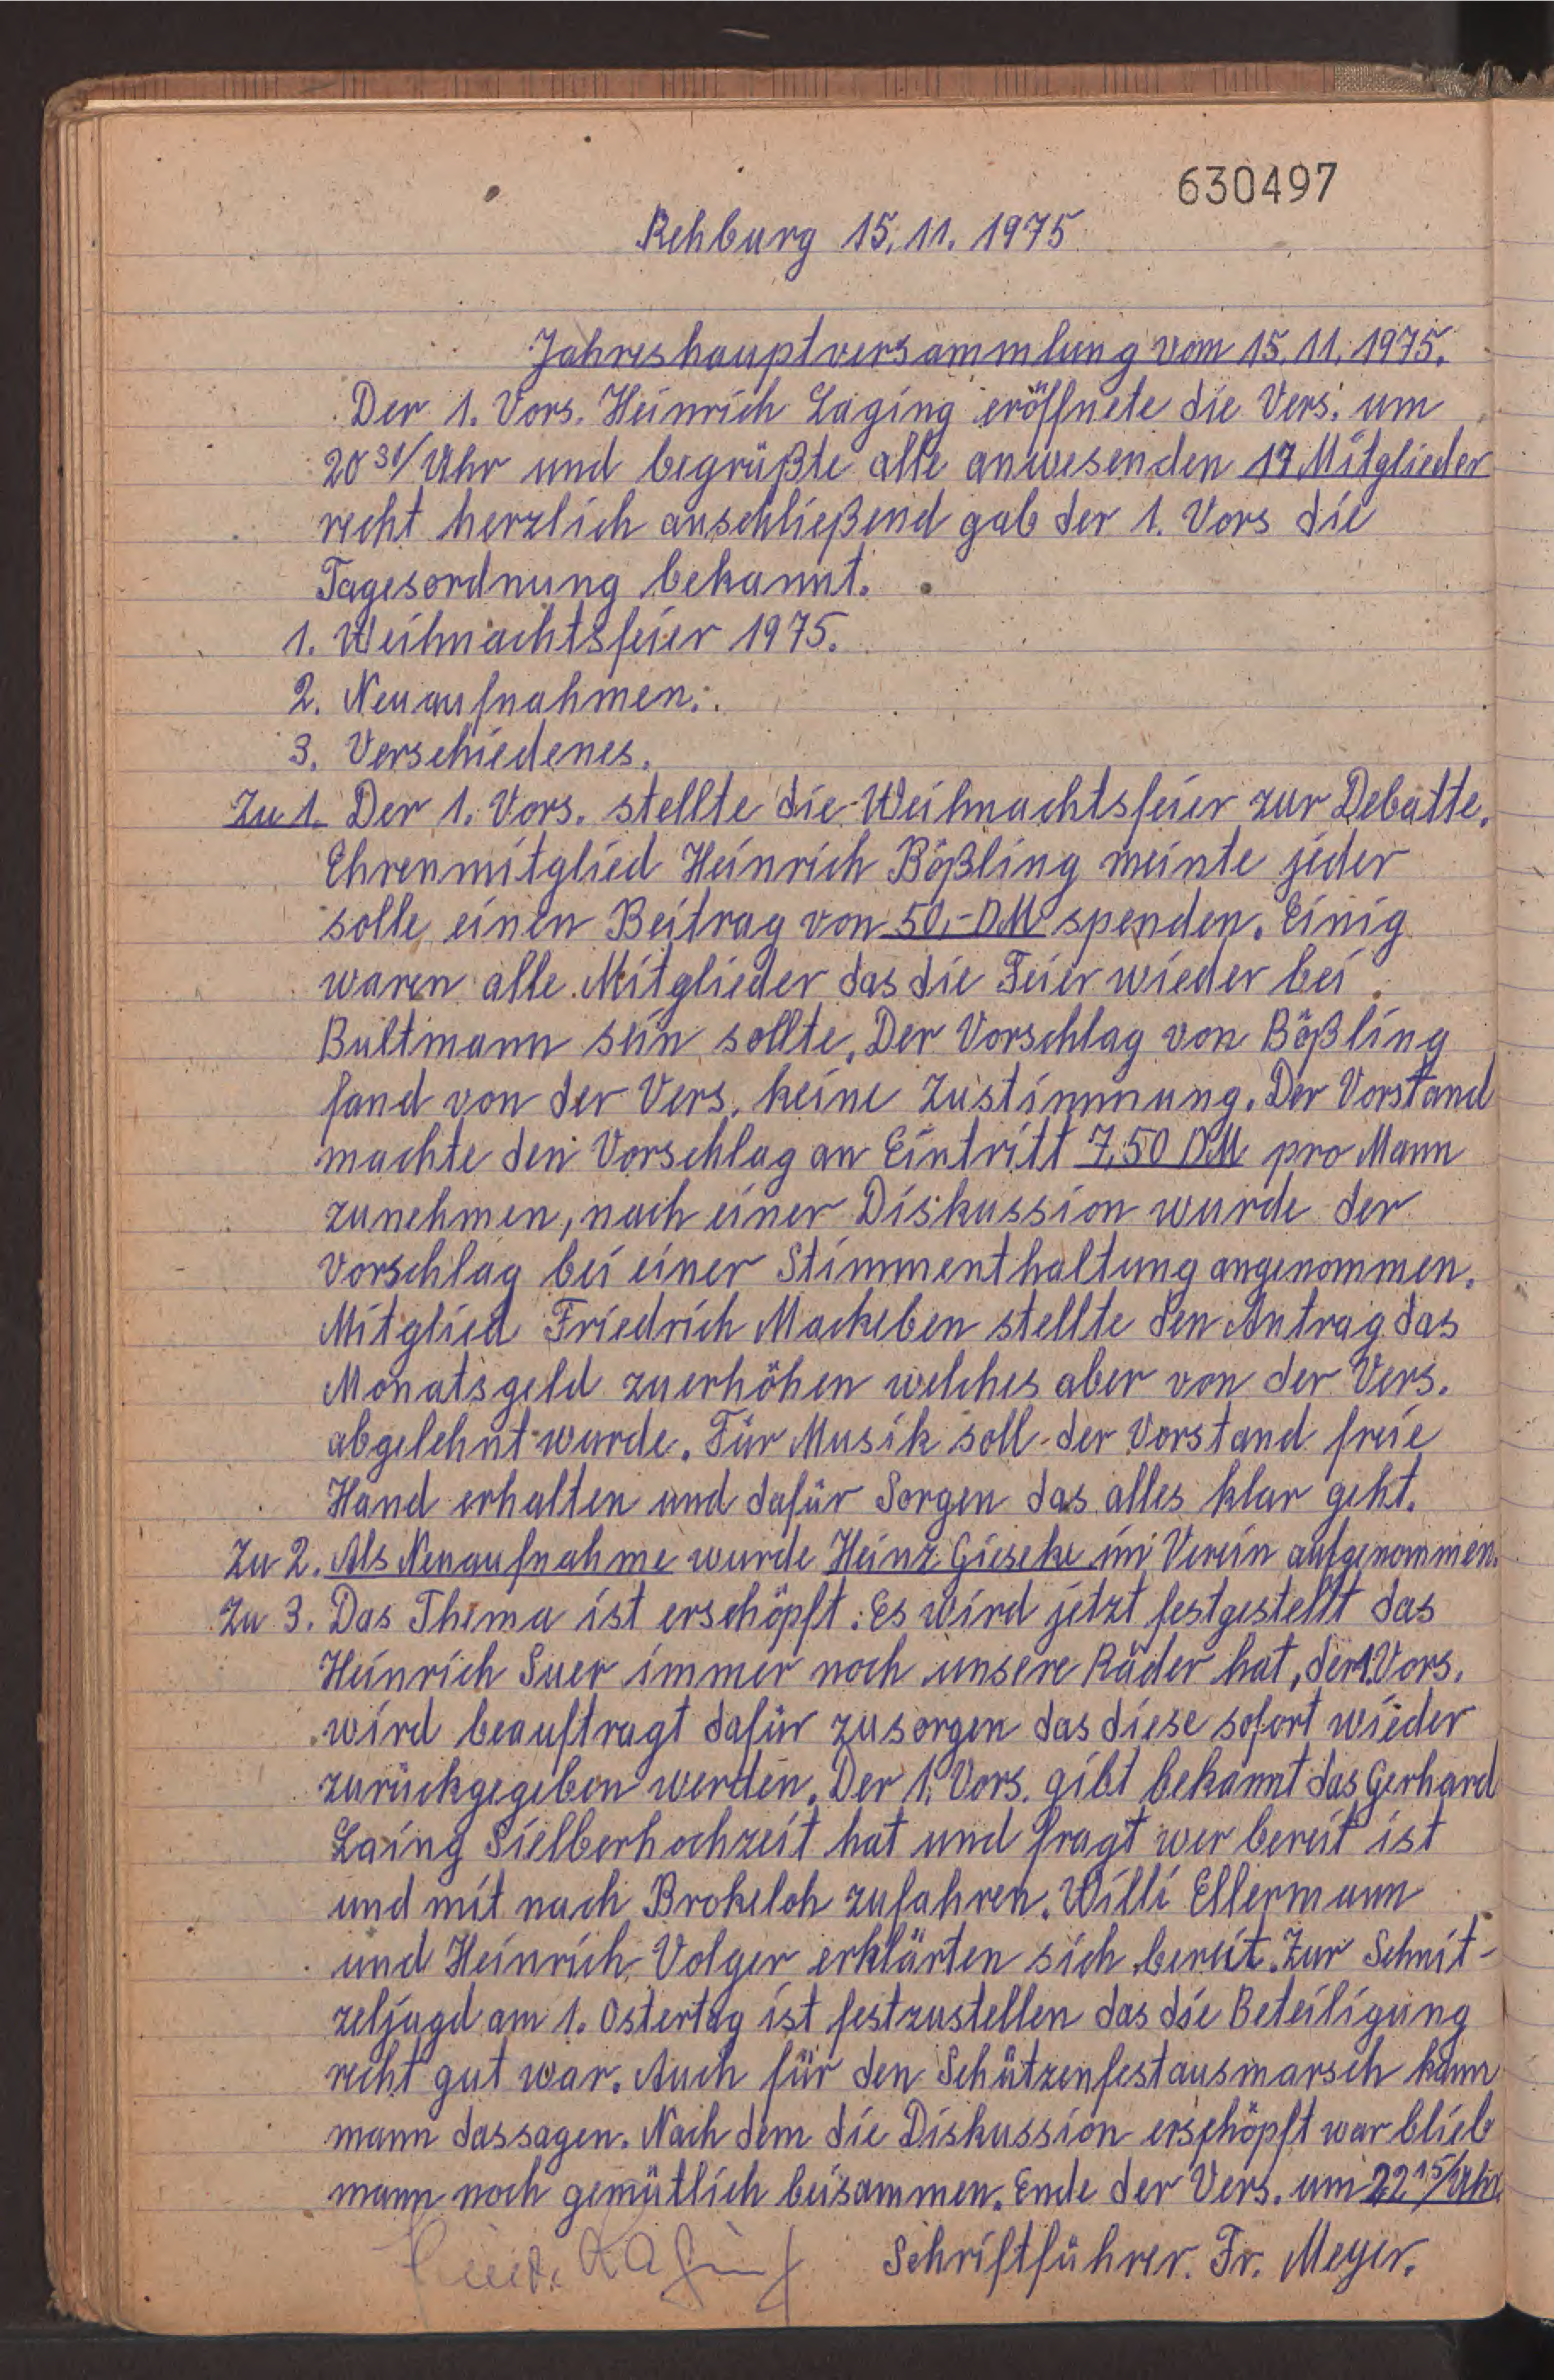 630497
Rehburg 15.11.1975
Jahreshauptversammlung vom 15.11.1975.
Der 1. Vors. Heinrich Laging eröffnete die Vers. um
20 30/ Uhr und begrüßte alle anwesenden 17 Mitglieder
recht herzlich anschließend gab der 1. Vors die
Tagesordnung bekannt.
1. Weihnachtsfeier 1975.
2. Neuaufnahmen.
3. Verschiedenes.
Zu 1. Der 1. Vors. stellte die Weihnachtsfeier zur Debatte.
Ehrenmitglied Heinrich Bößling meinte jeder
solle einen Beitrag von 50,- DM spenden. Einig
waren alle Mitglieder das die Feier wieder bei
Bultmann sein sollte. Der Vorschlag von Bößling
fand von der Vers. keine Zustimmung. Der Vorstand
machte den Vorschlag an Eintritt 7,50 DM pro Mann
zunehmen, nach einer Diskussion wurde der
Vorschlag bei einer Stimmenthaltung angenommen.
Mitglied Friedrich Mackeben stellte den Antrag das
Monatsgeld zuerhöhen welches aber von der Vers.
abgelehnt wurde. Für Musik soll der Vorstand freie
Hand erhalten und dafür Sorgen das alles klar geht.
Zu 2. Als Neuaufnahme wurde Heinz Gieseke im Verein aufgenommen.
Zu 3. Das Thema ist erschöpft. Es wird jetzt festgestellt das
Heinrich Suer immer noch unsere Räder hat, der 1. Vors.
wird beauftragt dafür zusorgen das diese sofort wieder
zurückgegeben werden. Der 1. Vors. gibt bekannt das Gerhard
Laing Sielberhochzeit hat und fragt wer bereit ist
und mit nach Brokeloh zufahren. Willi Ellermann
und Heinrich Volger erklärten sich bereit. Zur Schnit-
zeljagd am 1. Ostertag ist festzustellen das die Beteiligung
recht gut war. Auch für den Schützenfestausmarsch kann
mann dassagen. Nach dem die Diskussion erschöpft war blieb
mann noch gemütlich beisammen. Ende der Vers. um 22 15/ Uhr.
Schriftführer. Fr. Meyer.